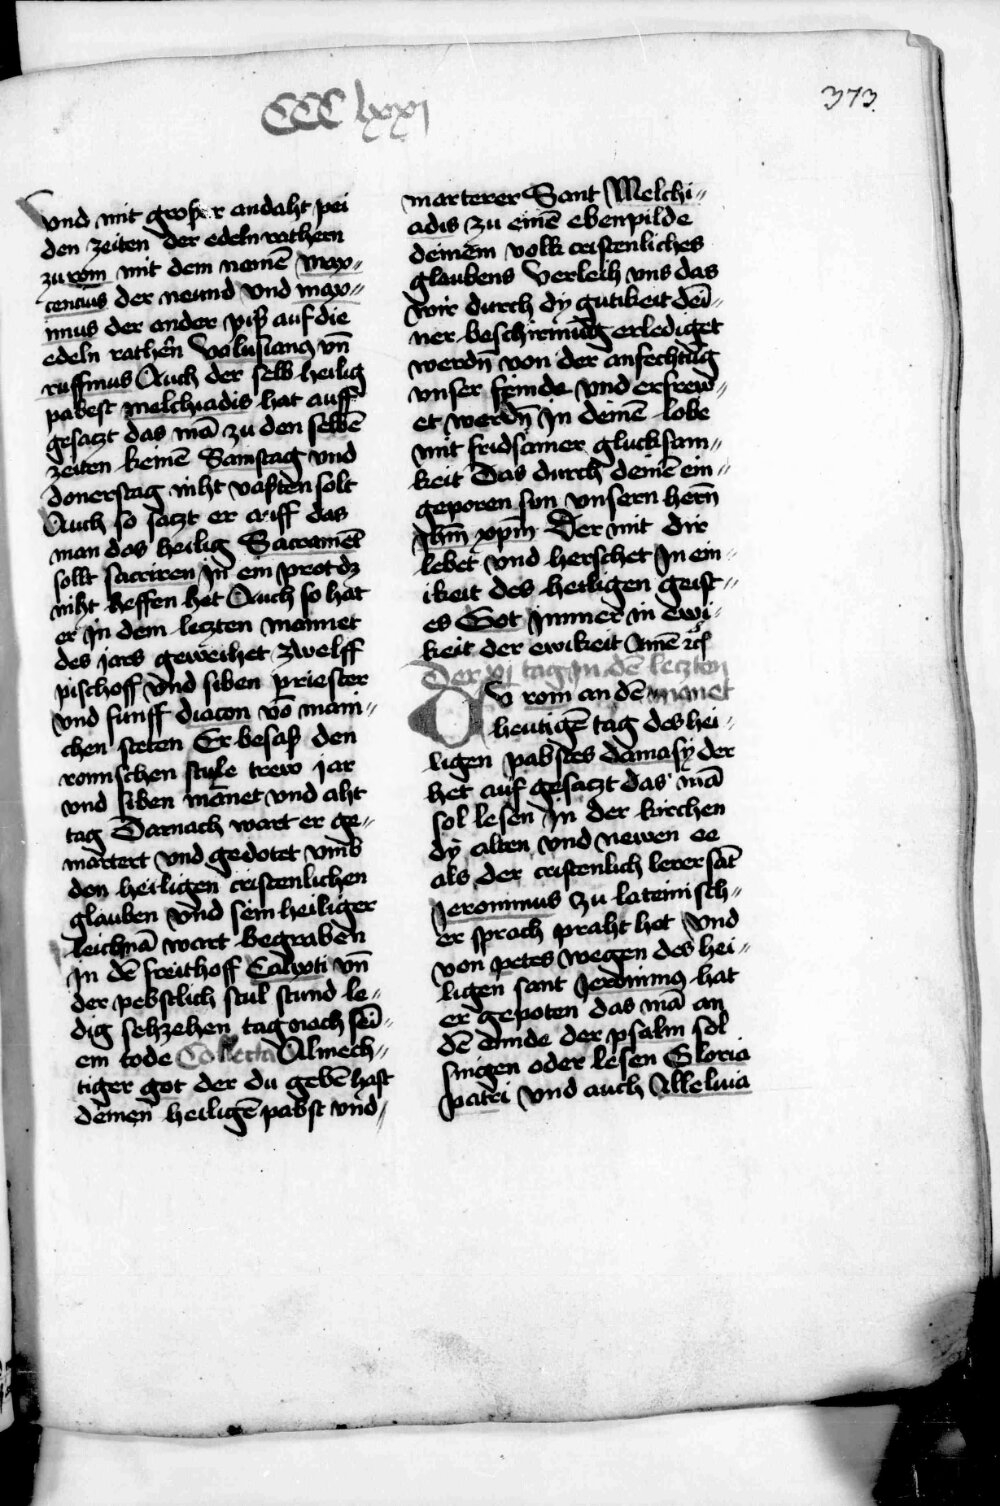 CCC lxxj
373.
vnd mit groszer andaht pei
den zeiten der edeln rathern
zu rom mit dem namē Max-
cencius der neund vnd max-
imus der ander pisz auf die
edeln rathēn Volusianus vn̄
ruffinus Auch der selb heilig
pabest melchiadis hat auff
gesatzt das mā zu den selbē
zeiten keinē Samstag vnd
donerstag niht vasten solt
Auch so satzt er auff das
man das heilig Sacramēt
sollt sacriren in ein prot dz
niht heffen het Auch so hat
er in dem letzten monnet
des jars geweihet zwelff
pischoff vnd siben priester
vnd funff diacon vō mani-
chen steten Er besasz den
romischen stule trew jar
vnd siben mānet vnd aht
tag Darnach wart er ge-
martert vnd gedotet vmb
den heiligen cristenlichen
glauben vnd sein heiliger
leichnā wart begraben
in dē freithoff Calixti vn̄
der pebstlich stul stund le-
dig sehzehen tag nach sei-
em tode Collecta Almech-
tiger got der du gebē hast
deinen heiligē pabst vnd
marterer Sant Melchi-
adis zu einē ebenpilde
deinem volk cristenliches
glaubens Verleih vns das
wir durch dÿ gutikeit dei-
ner beschirmūg erlediget
werdn̄ von der anfechtūg
vnser feinde vnd erfrew-
et werdn̄ in deinē lobe
mit fridsamer glucksam-
keit Das durch deinē ein-
geporen sun vnsern hern̄
Jhm̄ xpm̄ Der mit dir
lebet vnd herschet In ein-
ikeit des heiligen geist-
es Got jmmer in ewi-
keit der ewikeit Amē
Der xj tag in dē letzten
manet
ZV rom an dē
heutigē tag des hei-
ligen pabstes damasÿ der
het auf gesatzt das mā
sol lesen in der kirchen
dÿ alten vnd newen ee
als der cristenlich lerer sāt
Jeronimus zu lateinisch-
er sprach praht het vnd
von petes wegen des hei-
ligen sant Jeronimus hat
er gepoten das mā an
dē ennde der psalm sol
singen oder lesen Gloria
patri vnd auch Alleluia